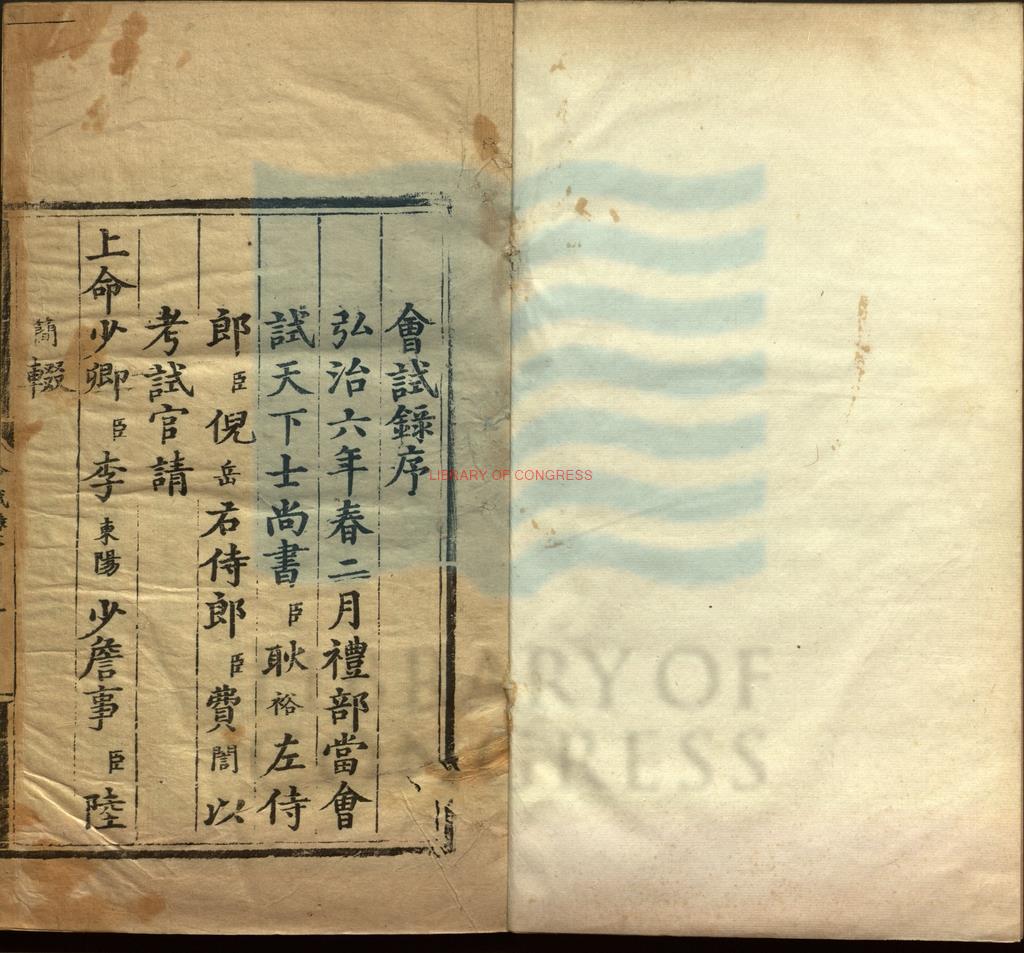 會試錄序
弘治六年春二月禮部當會
試天下士尚書臣耿裕左侍
郎臣倪岳右侍郎臣費誾以
考試官請
上命少卿臣李東陽少詹事臣陸
簡輟
LIBRARY OF CONGRESS